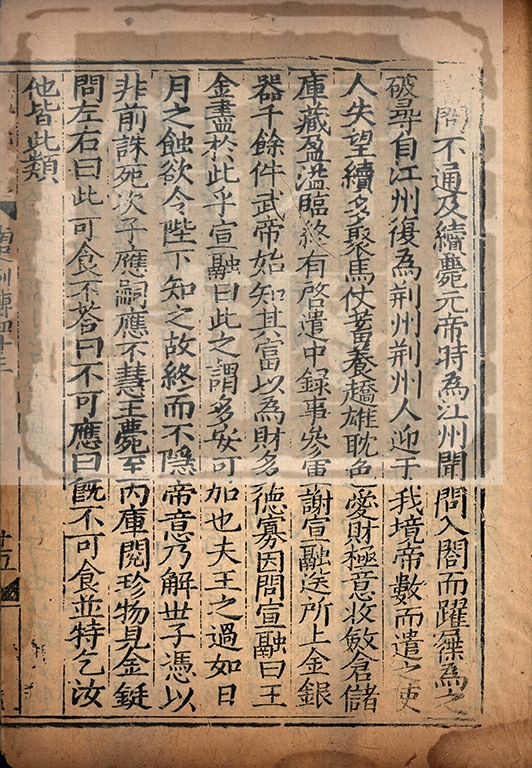 閤不通及續薨元帝時為江州聞問入閤而躍屧為之
破尋自江州復為荆州荆州人迎于我境帝數而遣之吏
人失望續多聚馬仗蓄養趫雄耽色愛財極意收斂倉儲
庫藏盈溢臨終有啓遣中録事參軍謝宣融送所上金銀
器千餘件武帝始知其富以為財多德寡因問宣融曰王
金盡於此乎宣融曰此之謂多安可加也夫王之過如日
月之蝕欲令陛下知之故終而不隱帝意乃解世子憑以
非前誅死次子應嗣應不慧王薨至内庫閱珍物見金鋌
問左右曰此可食不答曰不可應曰旣不可食並特乞汝
他皆此類
列傳四十三